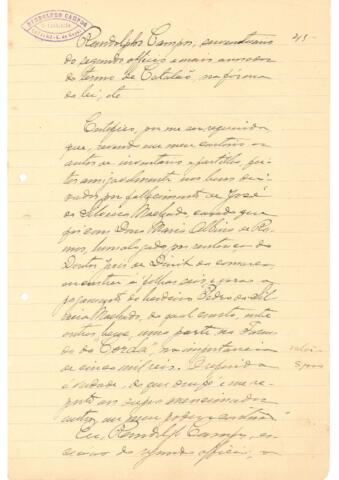 RANDOLPHO CAMPOS
Randolpho Campos, serventuario
do segundo officio e mais annexos
do termo de Catalão, na fórma
da lei, etc
Certifico, por me ser requerido
que, revendo em meu cartorio os
autos de inventario e partilha, fei-
tos amigavelmente nos bens dei-
xados por fallecimento de José
da Silveira Machado, casado que
foi com Dona Maria de Ra-
mos, homologado por sentença do
Doutor Juiz de Direito da comarca,
encontrei á folhas seis e o
pagamento do herdeiro Pedro da Sil-
veira Machado, do qual consta, entre
outros, uma parte na Fazen-
da da "Corda" na importancia
de cinco mil reis. O referido
é verdade, do que dou fé e me re-
porto aos supra mencionados
autos, em meu poder e cartorio.
Eu, Randolpho Campos, es-
crivão do segundo officio, o